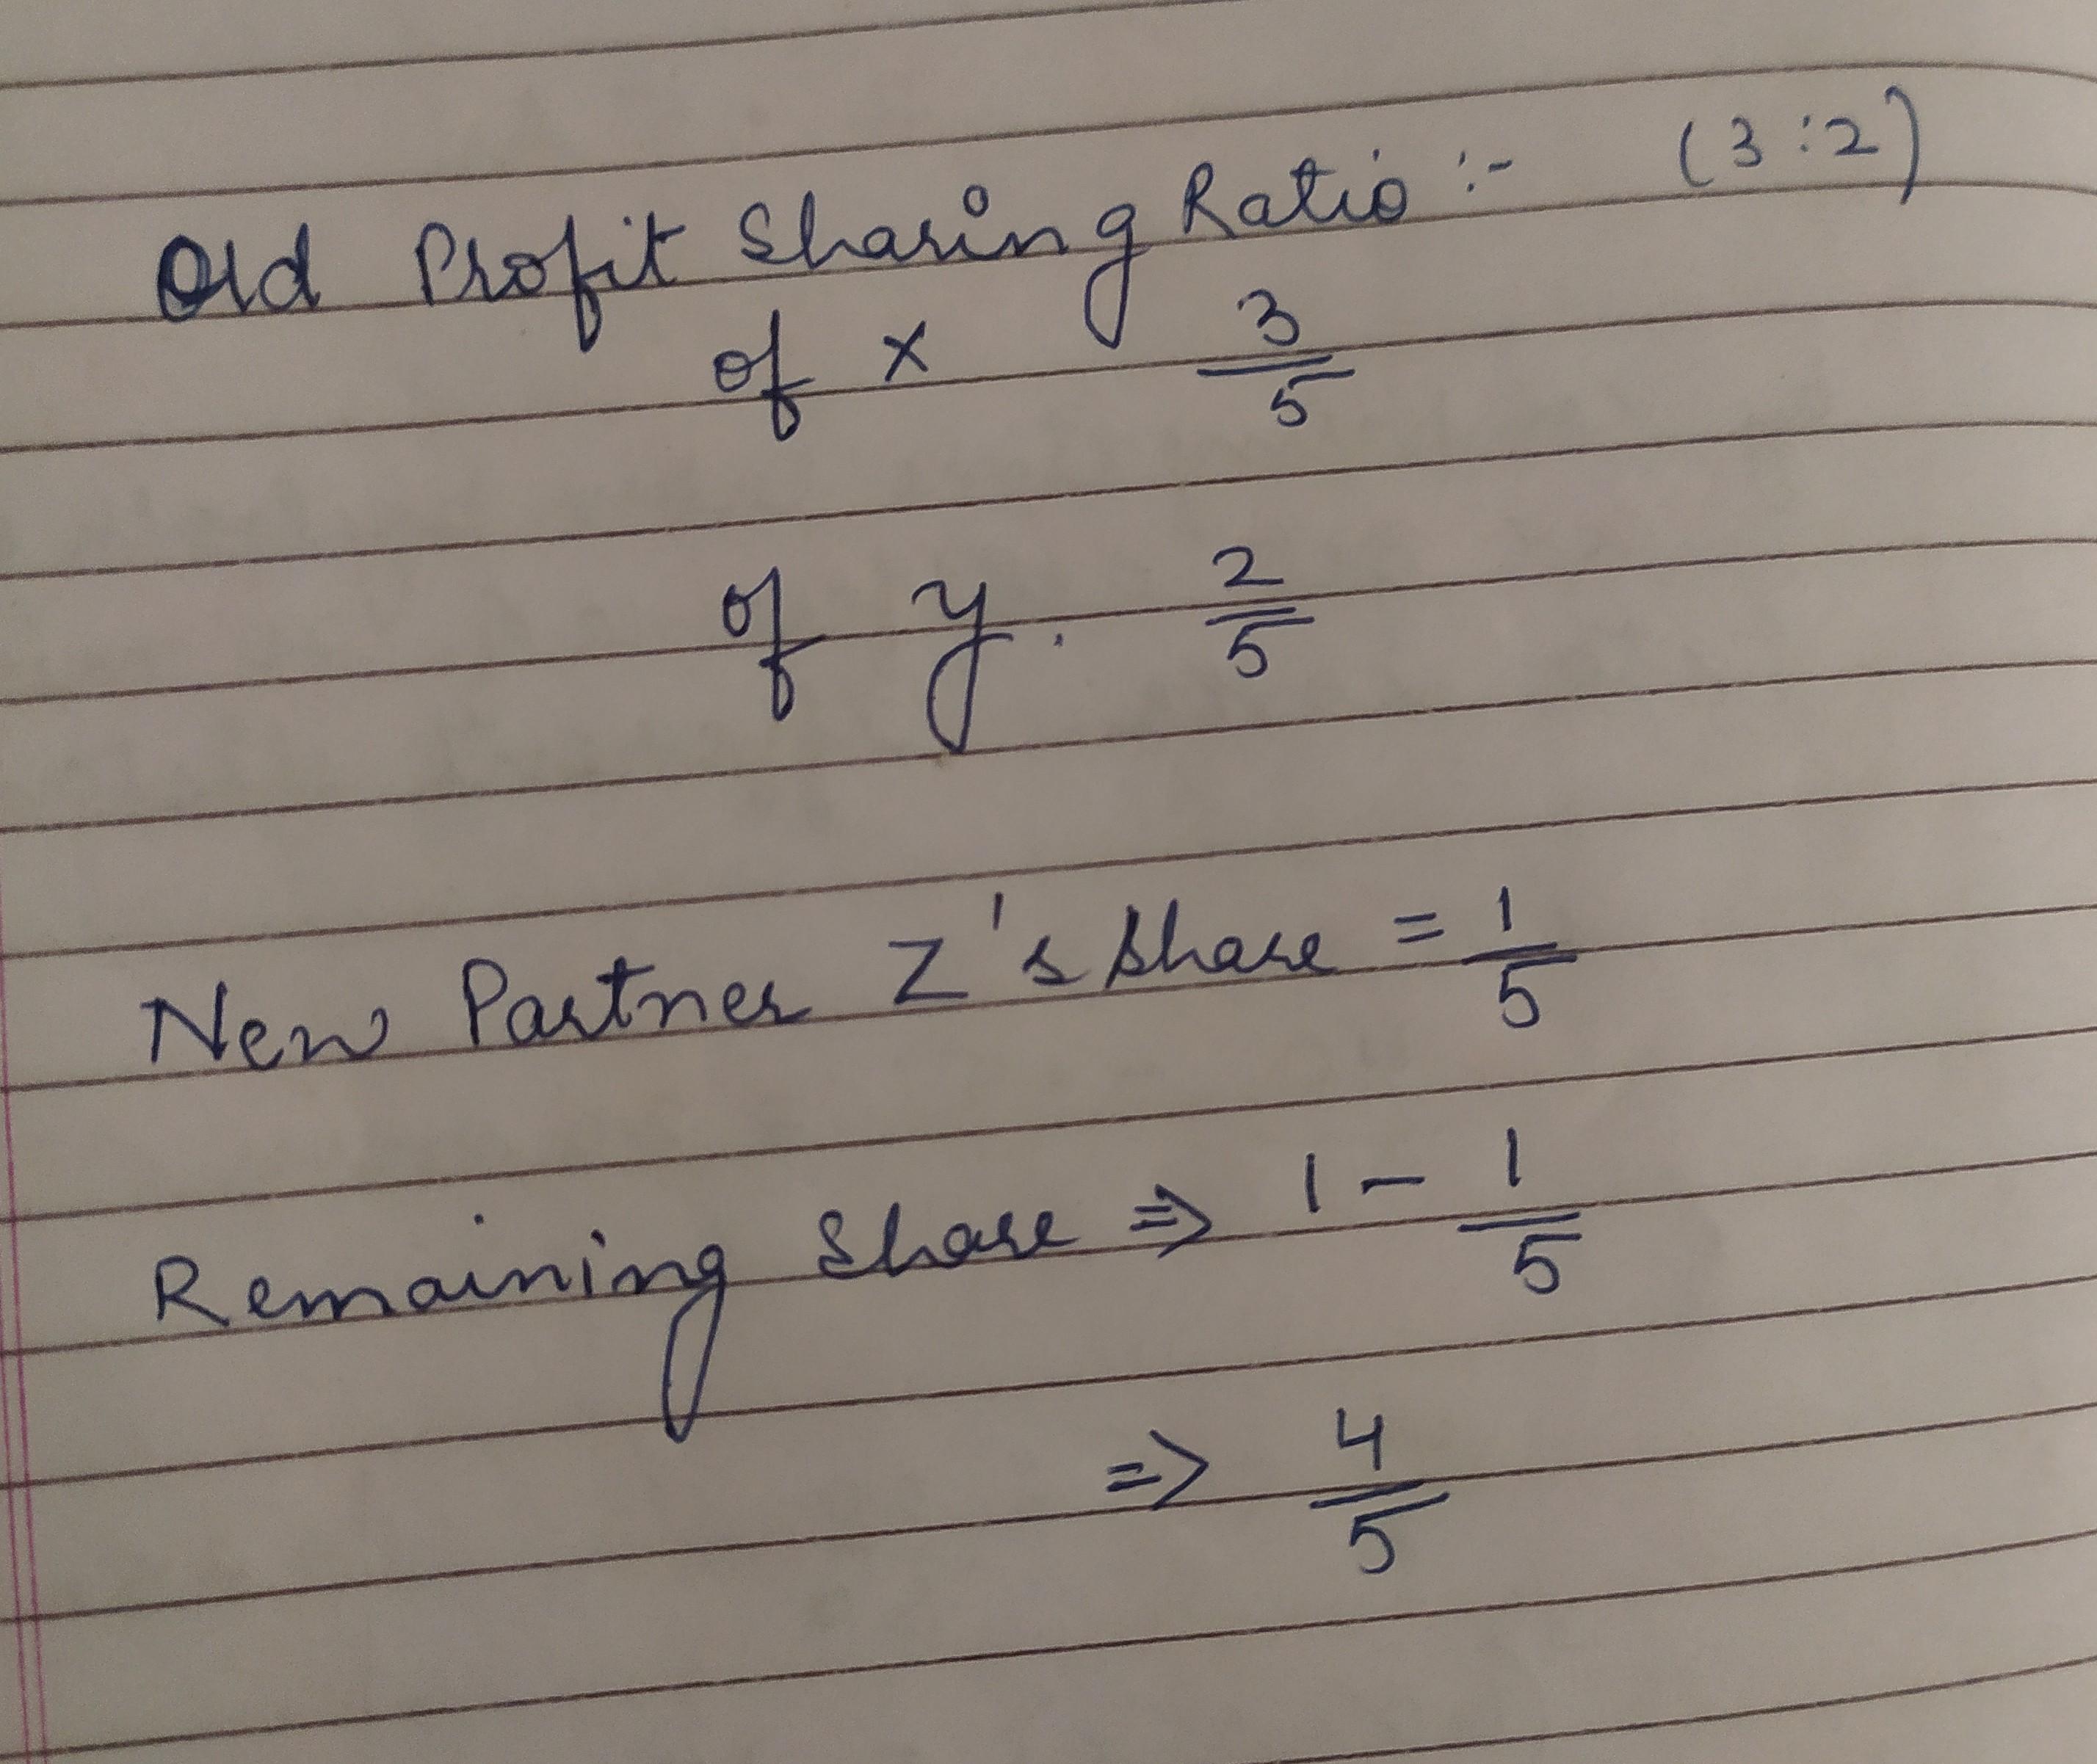 Old Profit Sharing Ratio :- (3:2)
of x 3/5
of y. 2/5
New Partner Z's share = 1/5
Remaining Share => 1 - 1/5
=> 4/5